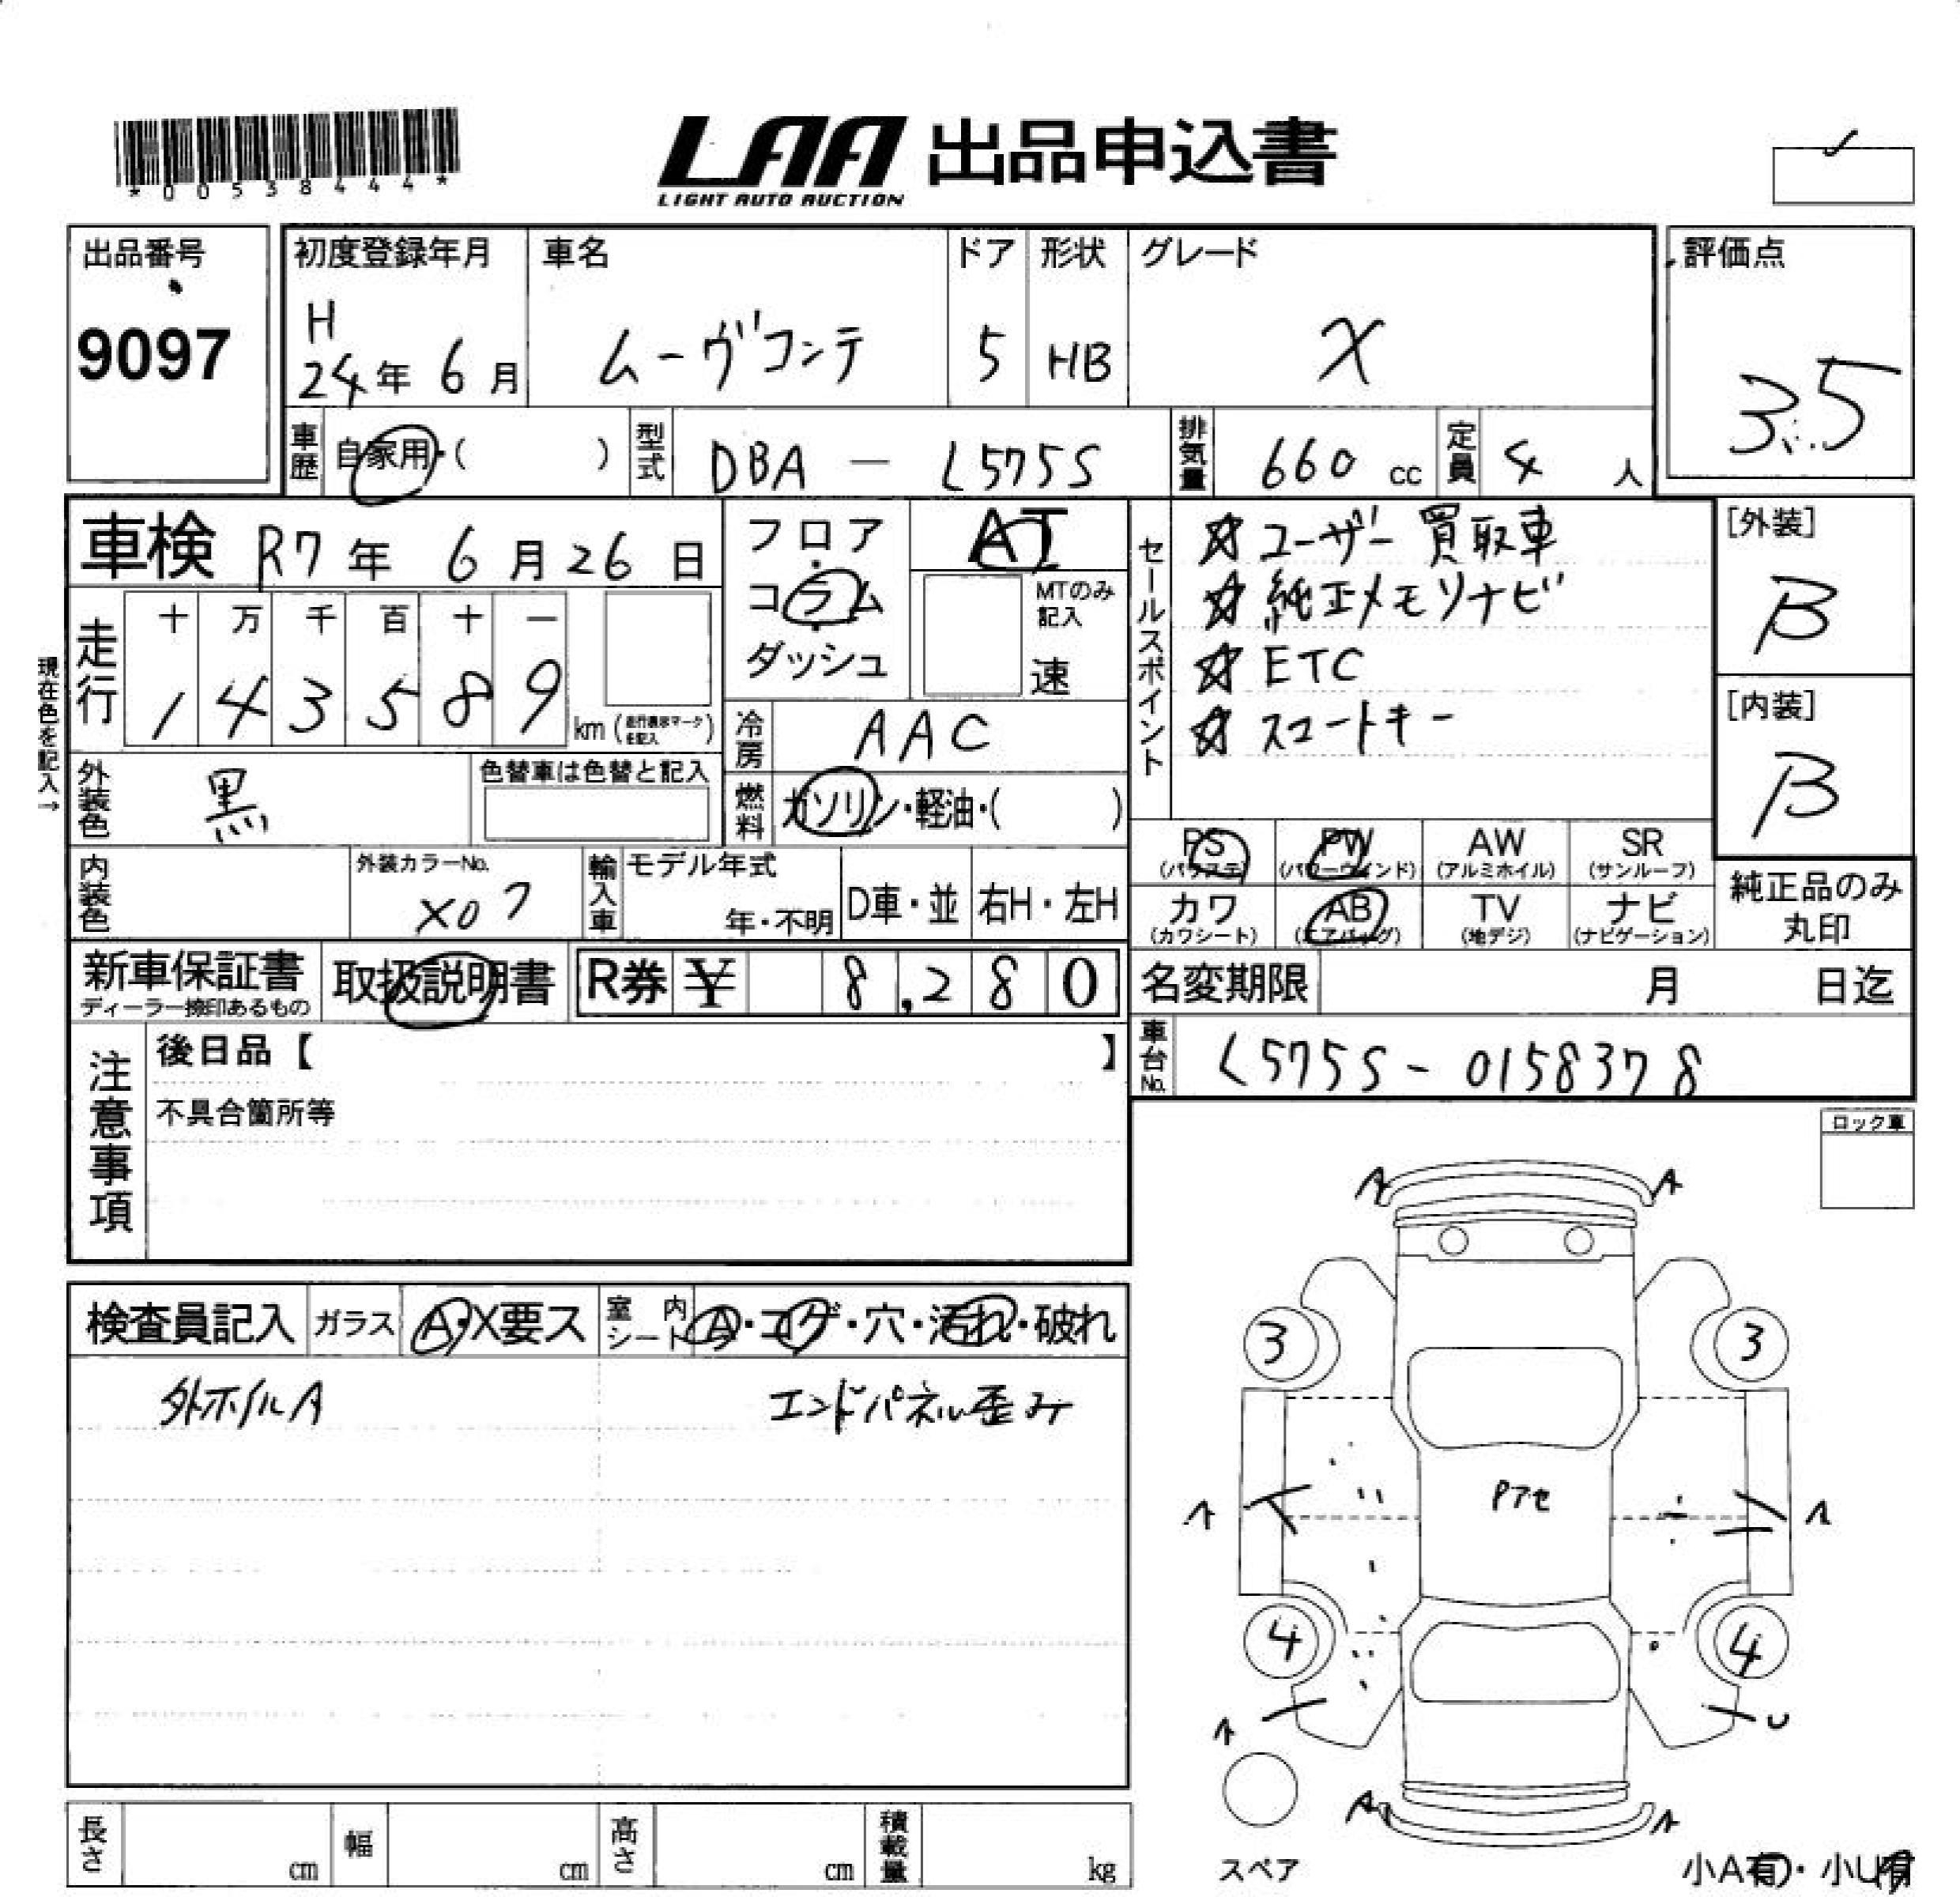 *00538444*
LAA 出品申込書
LIGHT AUTO AUCTION
出品番号
9097
初度登録年月
H
24年 6月
車名
ムーヴコンテ
ドア
5
形状
HB
グレード
X
評価点
3.5
車歴 自家用・( )
型式 DBA - L575S
排気量 660 cc
定員 4 人
車検 R7年 6月26日
フロア・コラム・ダッシュ
AT
MTのみ記入
速
セールスポイント
☆ユーザー買取車
☆純正メモリナビ
☆ETC
☆スマートキー
[外装]
B
[内装]
B
現在色を記入→
走行
十 万 千 百 十 一
1 4 3 5 8 9 km (走行表示マークを記入)
冷房 AAC
外装色 黒
色替車は色替と記入
燃料 ガソリン・軽油・( )
PS (パワステ)
PW (パワーウインド)
AW (アルミホイル)
SR (サンルーフ)
内装色
外装カラーNo.
X07
輸入車
モデル年式
年・不明
D車・並
右H・左H
カワ (カワシート)
AB (エアバッグ)
TV (地デジ)
ナビ (ナビゲーション)
純正品のみ丸印
新車保証書
ディーラー捺印あるもの
取扱説明書
R券 ¥ 8,280
名変期限 月 日迄
車台No. L575S-0158378
注意事項
後日品【 】
不具合箇所等
ロック車
検査員記入
ガラス A・X要ス
室内シート A・コゲ・穴・汚れ・破れ
外ホイルA
エンドパネル歪み
A A
3 3
Pアセ
A A
4 4
A U
A A
スペア
小A有・小U有
長さ cm
幅 cm
高さ cm
積載量 kg